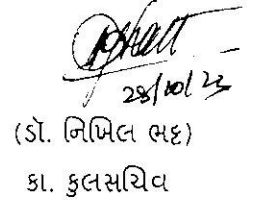 28/10/23
(ડૉ. નિખિલ ભટ્ટ)
કા. કુલસચિવ